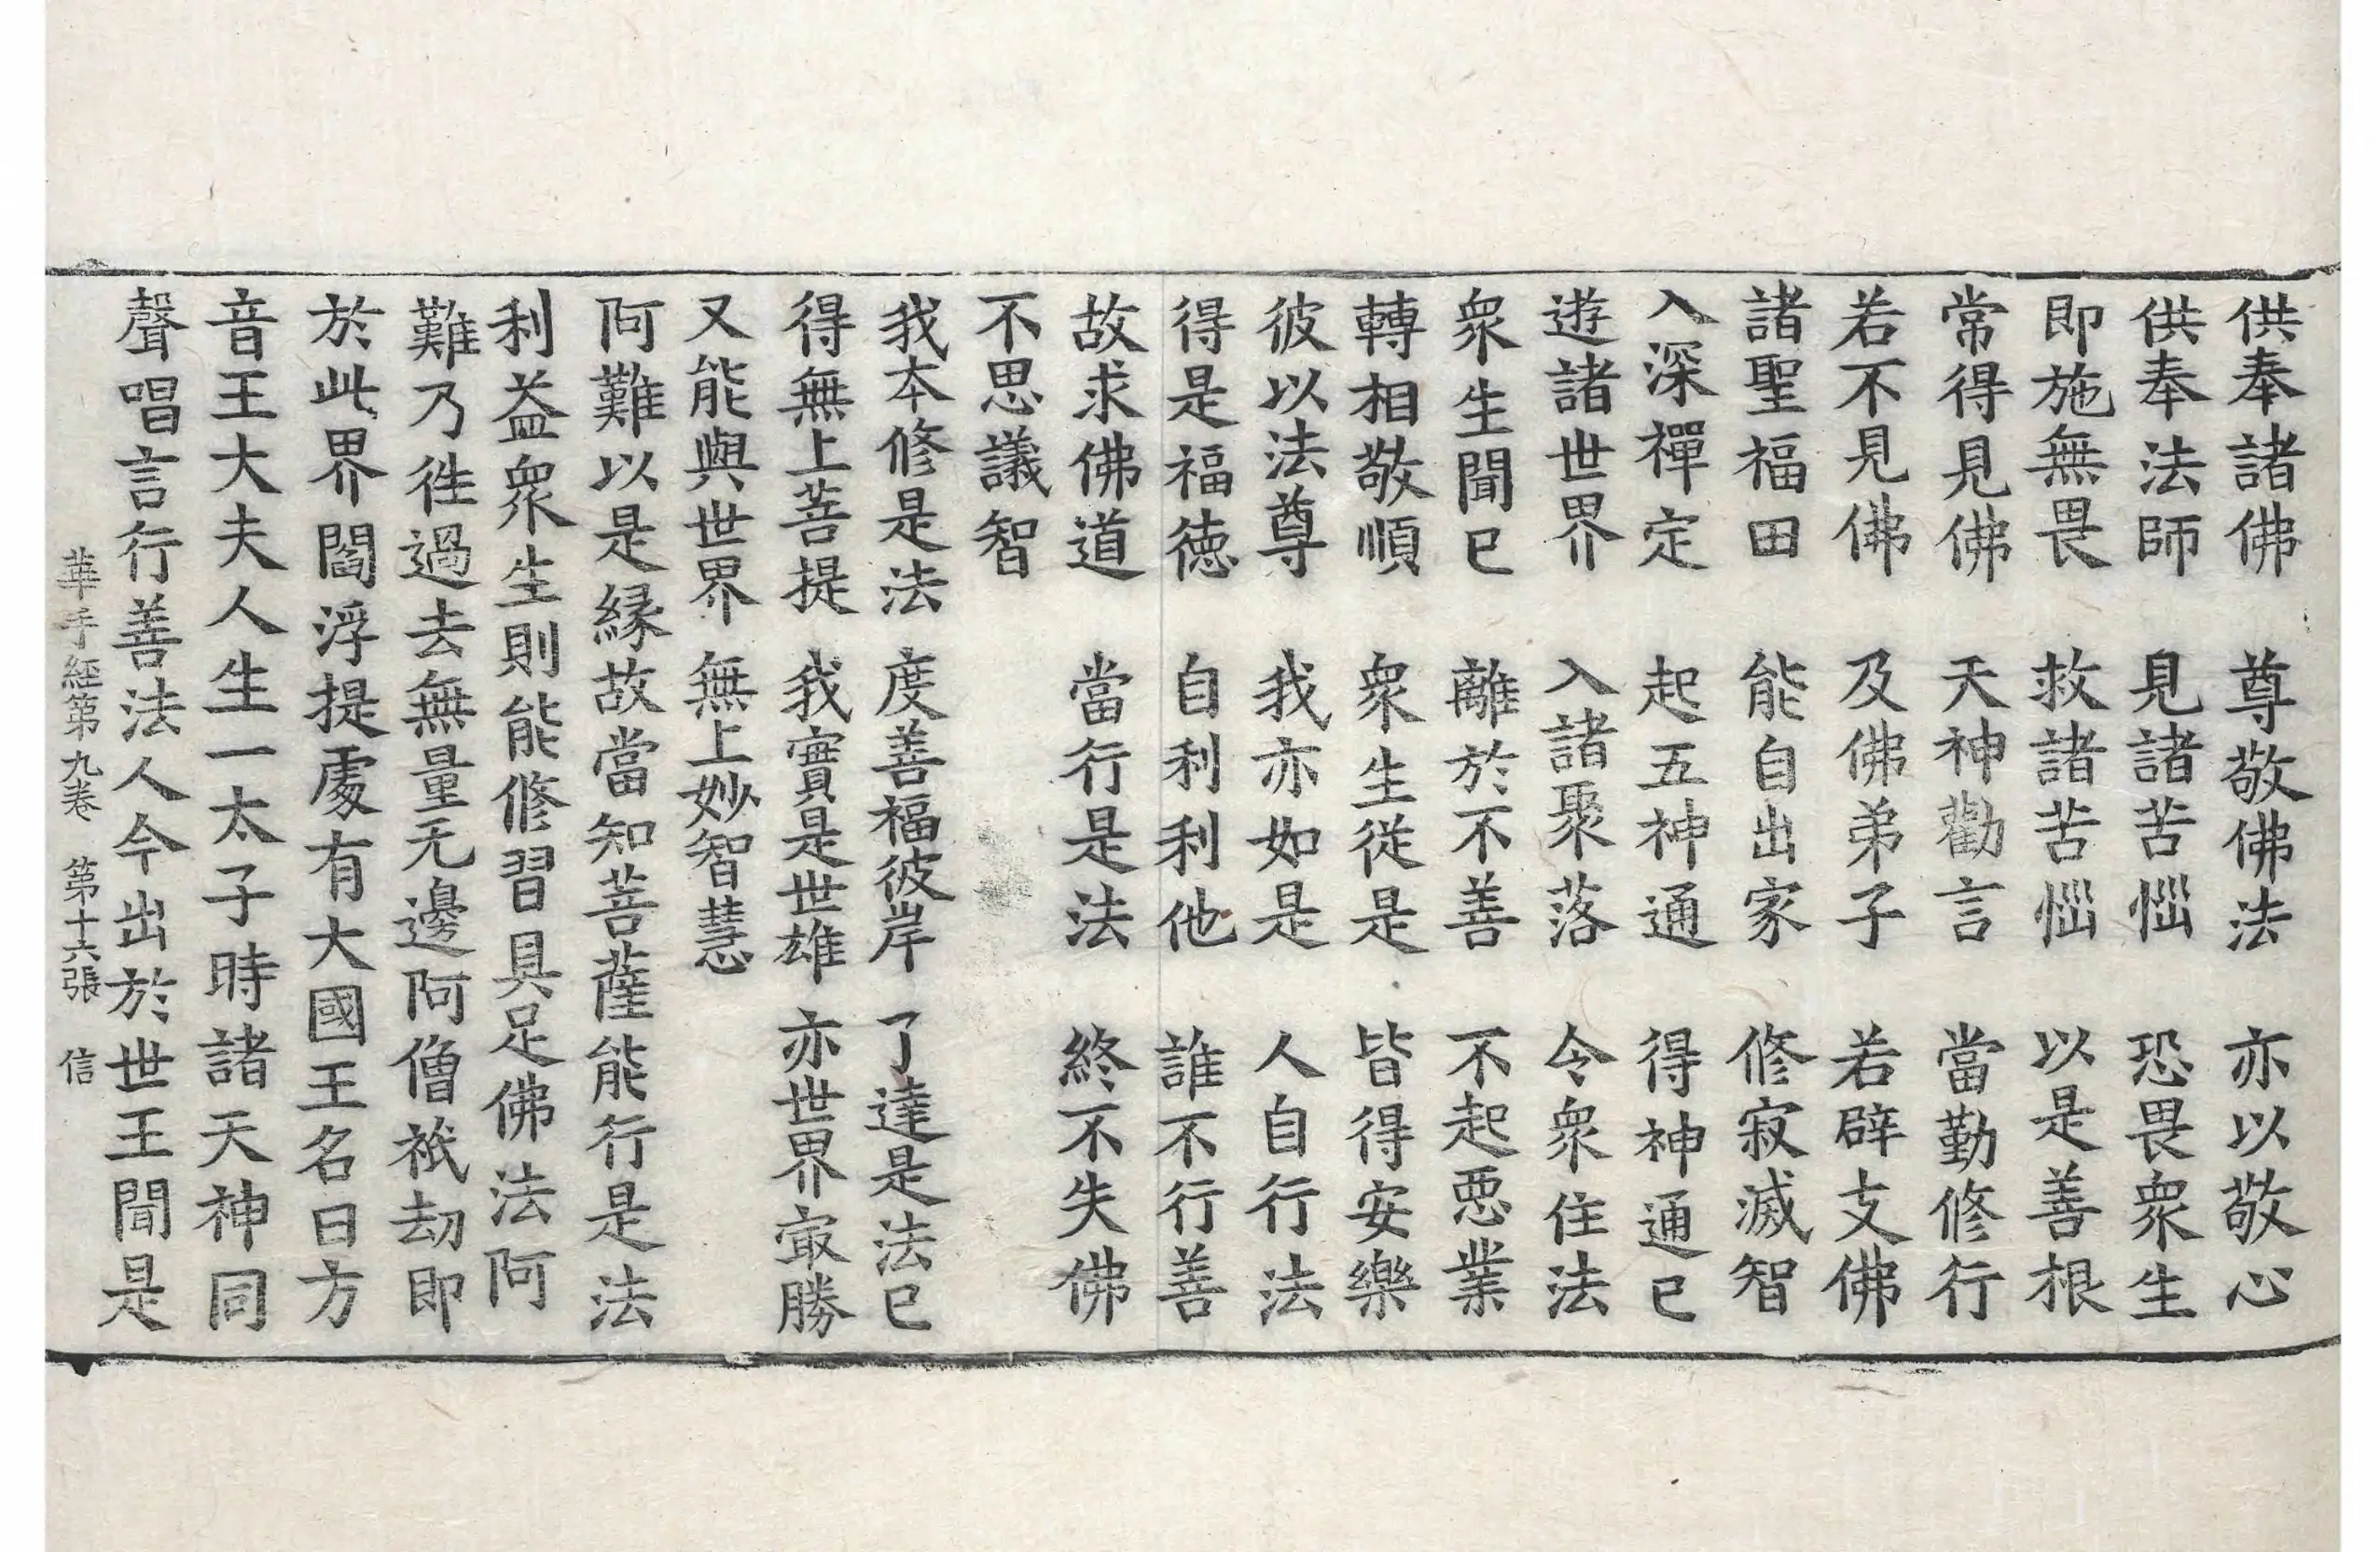 供奉諸佛　尊敬佛法　亦以敬心
供奉法師　見諸苦惱　恐畏衆生
即施無畏　救諸苦惱　以是善根
常得見佛　天神勸言　當勤修行
若不見佛　及佛弟子　若辟支佛
諸聖福田　能自出家　修寂滅智
入深禪定　起五神通　得神通已
遊諸世界　入諸聚落　令衆住法
衆生聞已　離於不善　不起惡業
轉相敬順　衆生從是　皆得安樂
彼以法尊　我亦如是　人自行法
得是福徳　自利利他　誰不行善
故求佛道　當行是法　終不失佛
不思議智
我本修是法　度善福彼岸　了達是法已
得無上菩提　我實是世雄　亦世界㝡勝
又能與世界　無上妙智慧
阿難以是縁故當知菩薩能行是法
利益衆生則能修習具足佛法阿
難乃徃過去無量无邊阿僧祇劫即
於此界閻浮提處有大國王名曰方
音王大夫人生一太子時諸天神同
聲唱言行善法人今出於世王聞是
華手經第九卷　第十六張　信